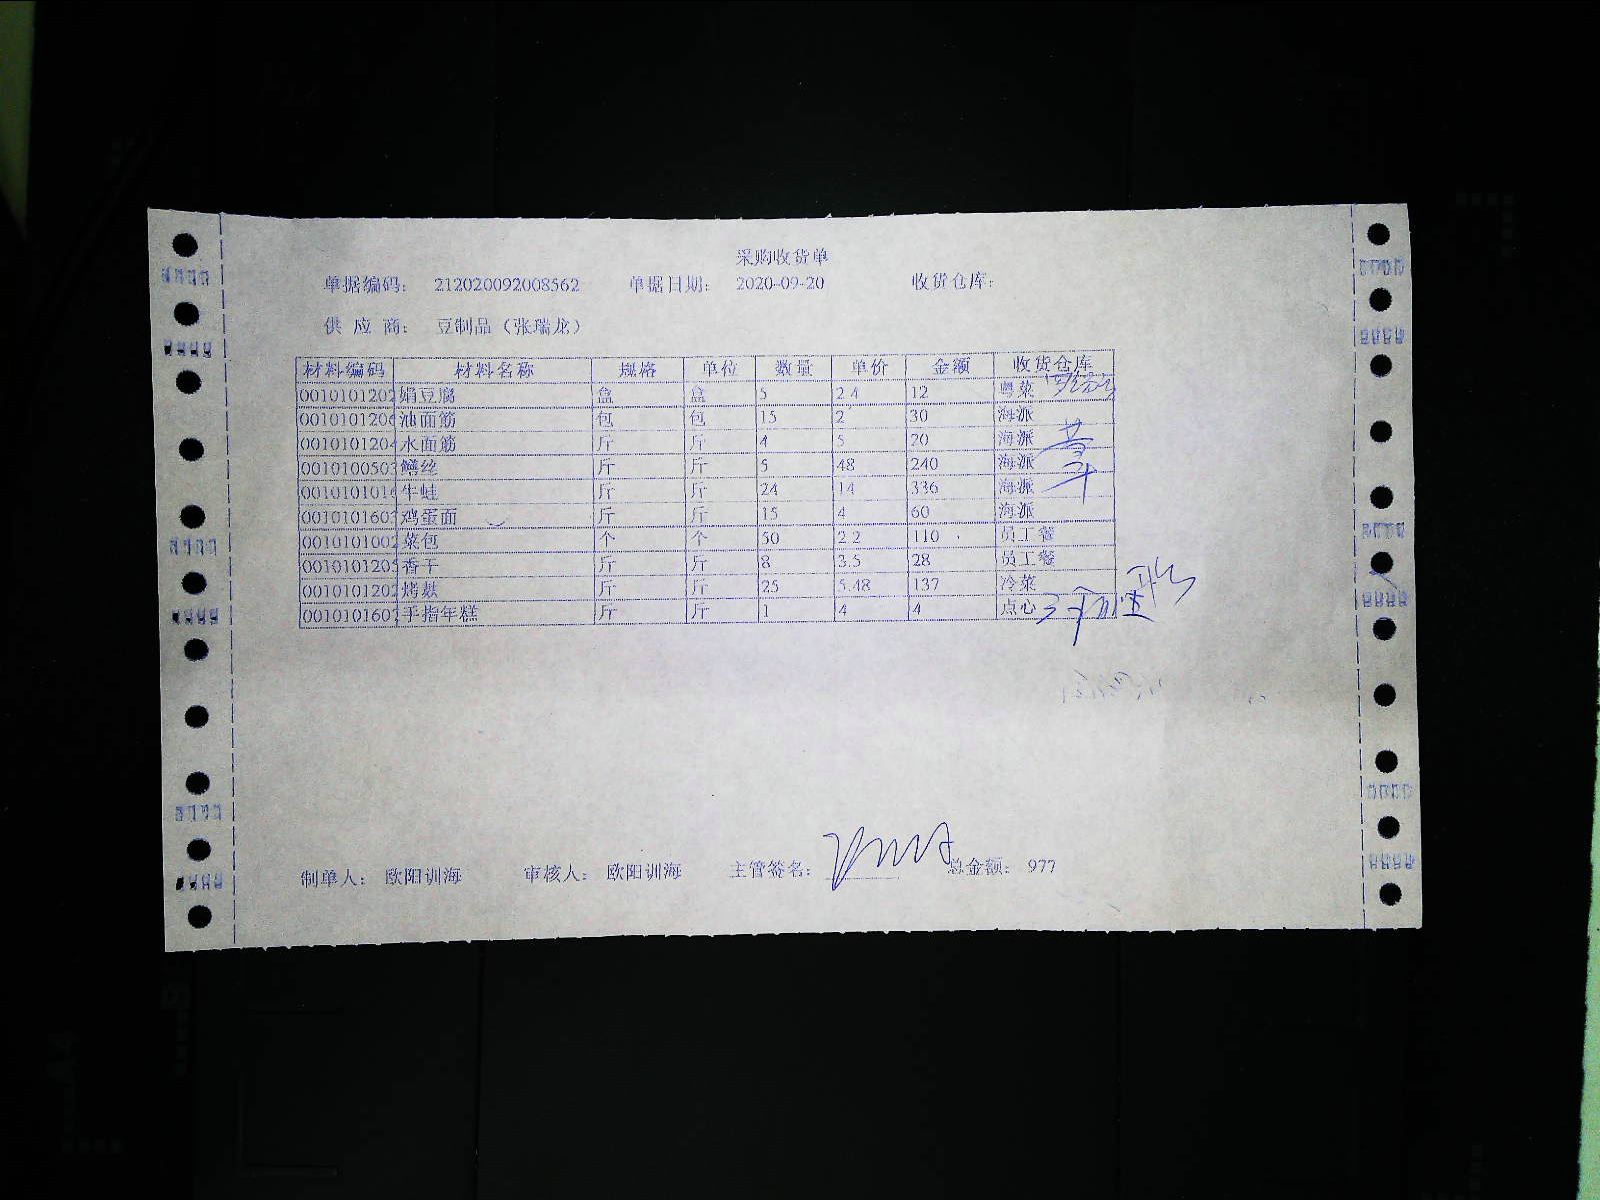 采购收货单
单据编码: 212020092008562 单据日期: 2020-09-20 收货仓库:
供 应 商: 豆制品（张瑞龙）
材料编码 材料名称 规格 单位 数量 单价 金额 收货仓库
0010101202 娟豆腐 盒 盒 5 2.4 12 粤菜
0010101206 油面筋 包 包 15 2 30 海派
0010101204 水面筋 斤 斤 4 5 20 海派
0010100503 鳝丝 斤 斤 5 48 240 海派
0010101016 牛蛙 斤 斤 24 14 336 海派
0010101603 鸡蛋面 斤 斤 15 4 60 海派
0010101002 菜包 个 个 50 2.2 110 员工餐
0010101205 香干 斤 斤 8 3.5 28 员工餐
0010101202 烤麸 斤 斤 25 5.48 137 冷菜
0010101607 手指年糕 斤 斤 1 4 4 点心
制单人: 欧阳训海 审核人: 欧阳训海 主管签名: 总金额: 977